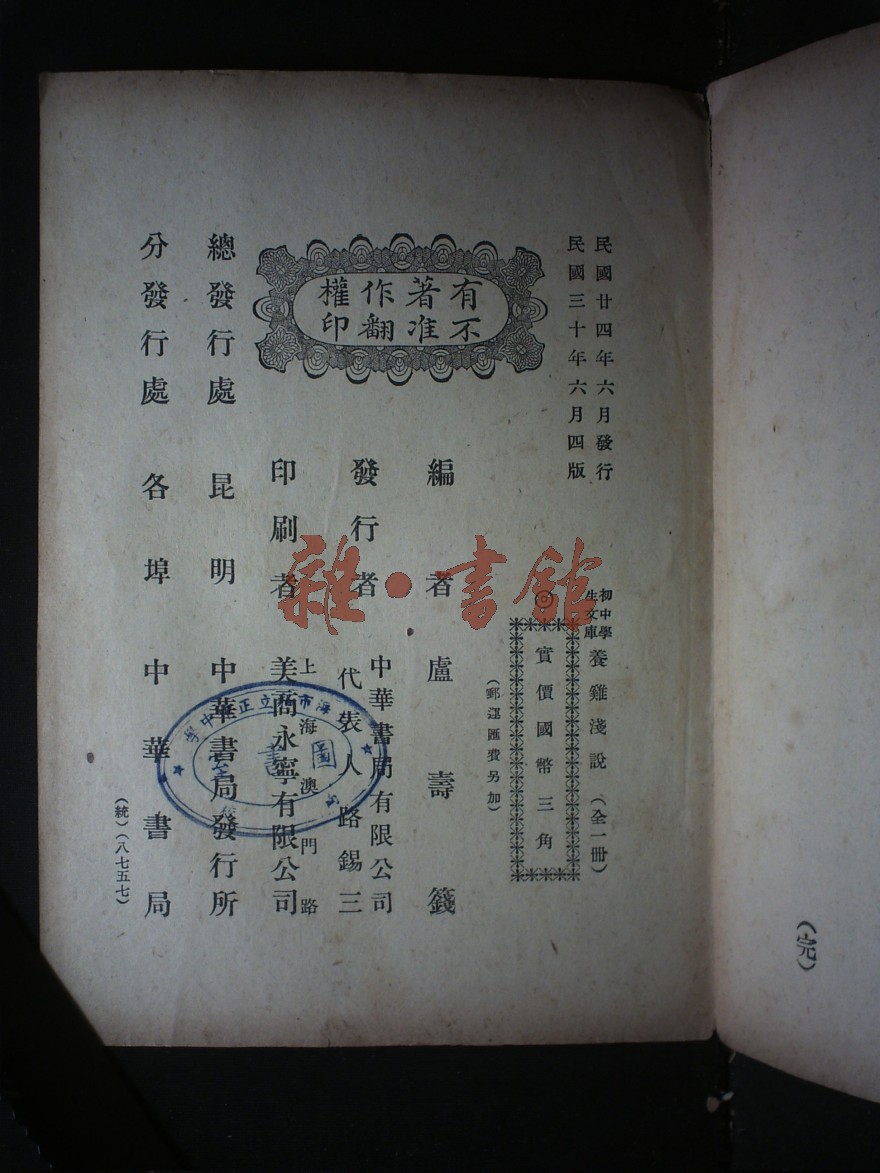 民國廿四年六月發行
民國三十年六月四版
初中學
生文庫
養雞淺說（全一冊）
◎
實價國幣三角
（郵運匯費另加）
有著作權
不准翻印
編者 盧壽籛
發行者 中華書局有限公司
代表人 路錫三
印刷者 上海澳門路
美商永寧有限公司
總發行處 昆明 中華書局發行所
分發行處 各埠 中華書局
（統）（八七五七）
（完）
雜·書館
圖書